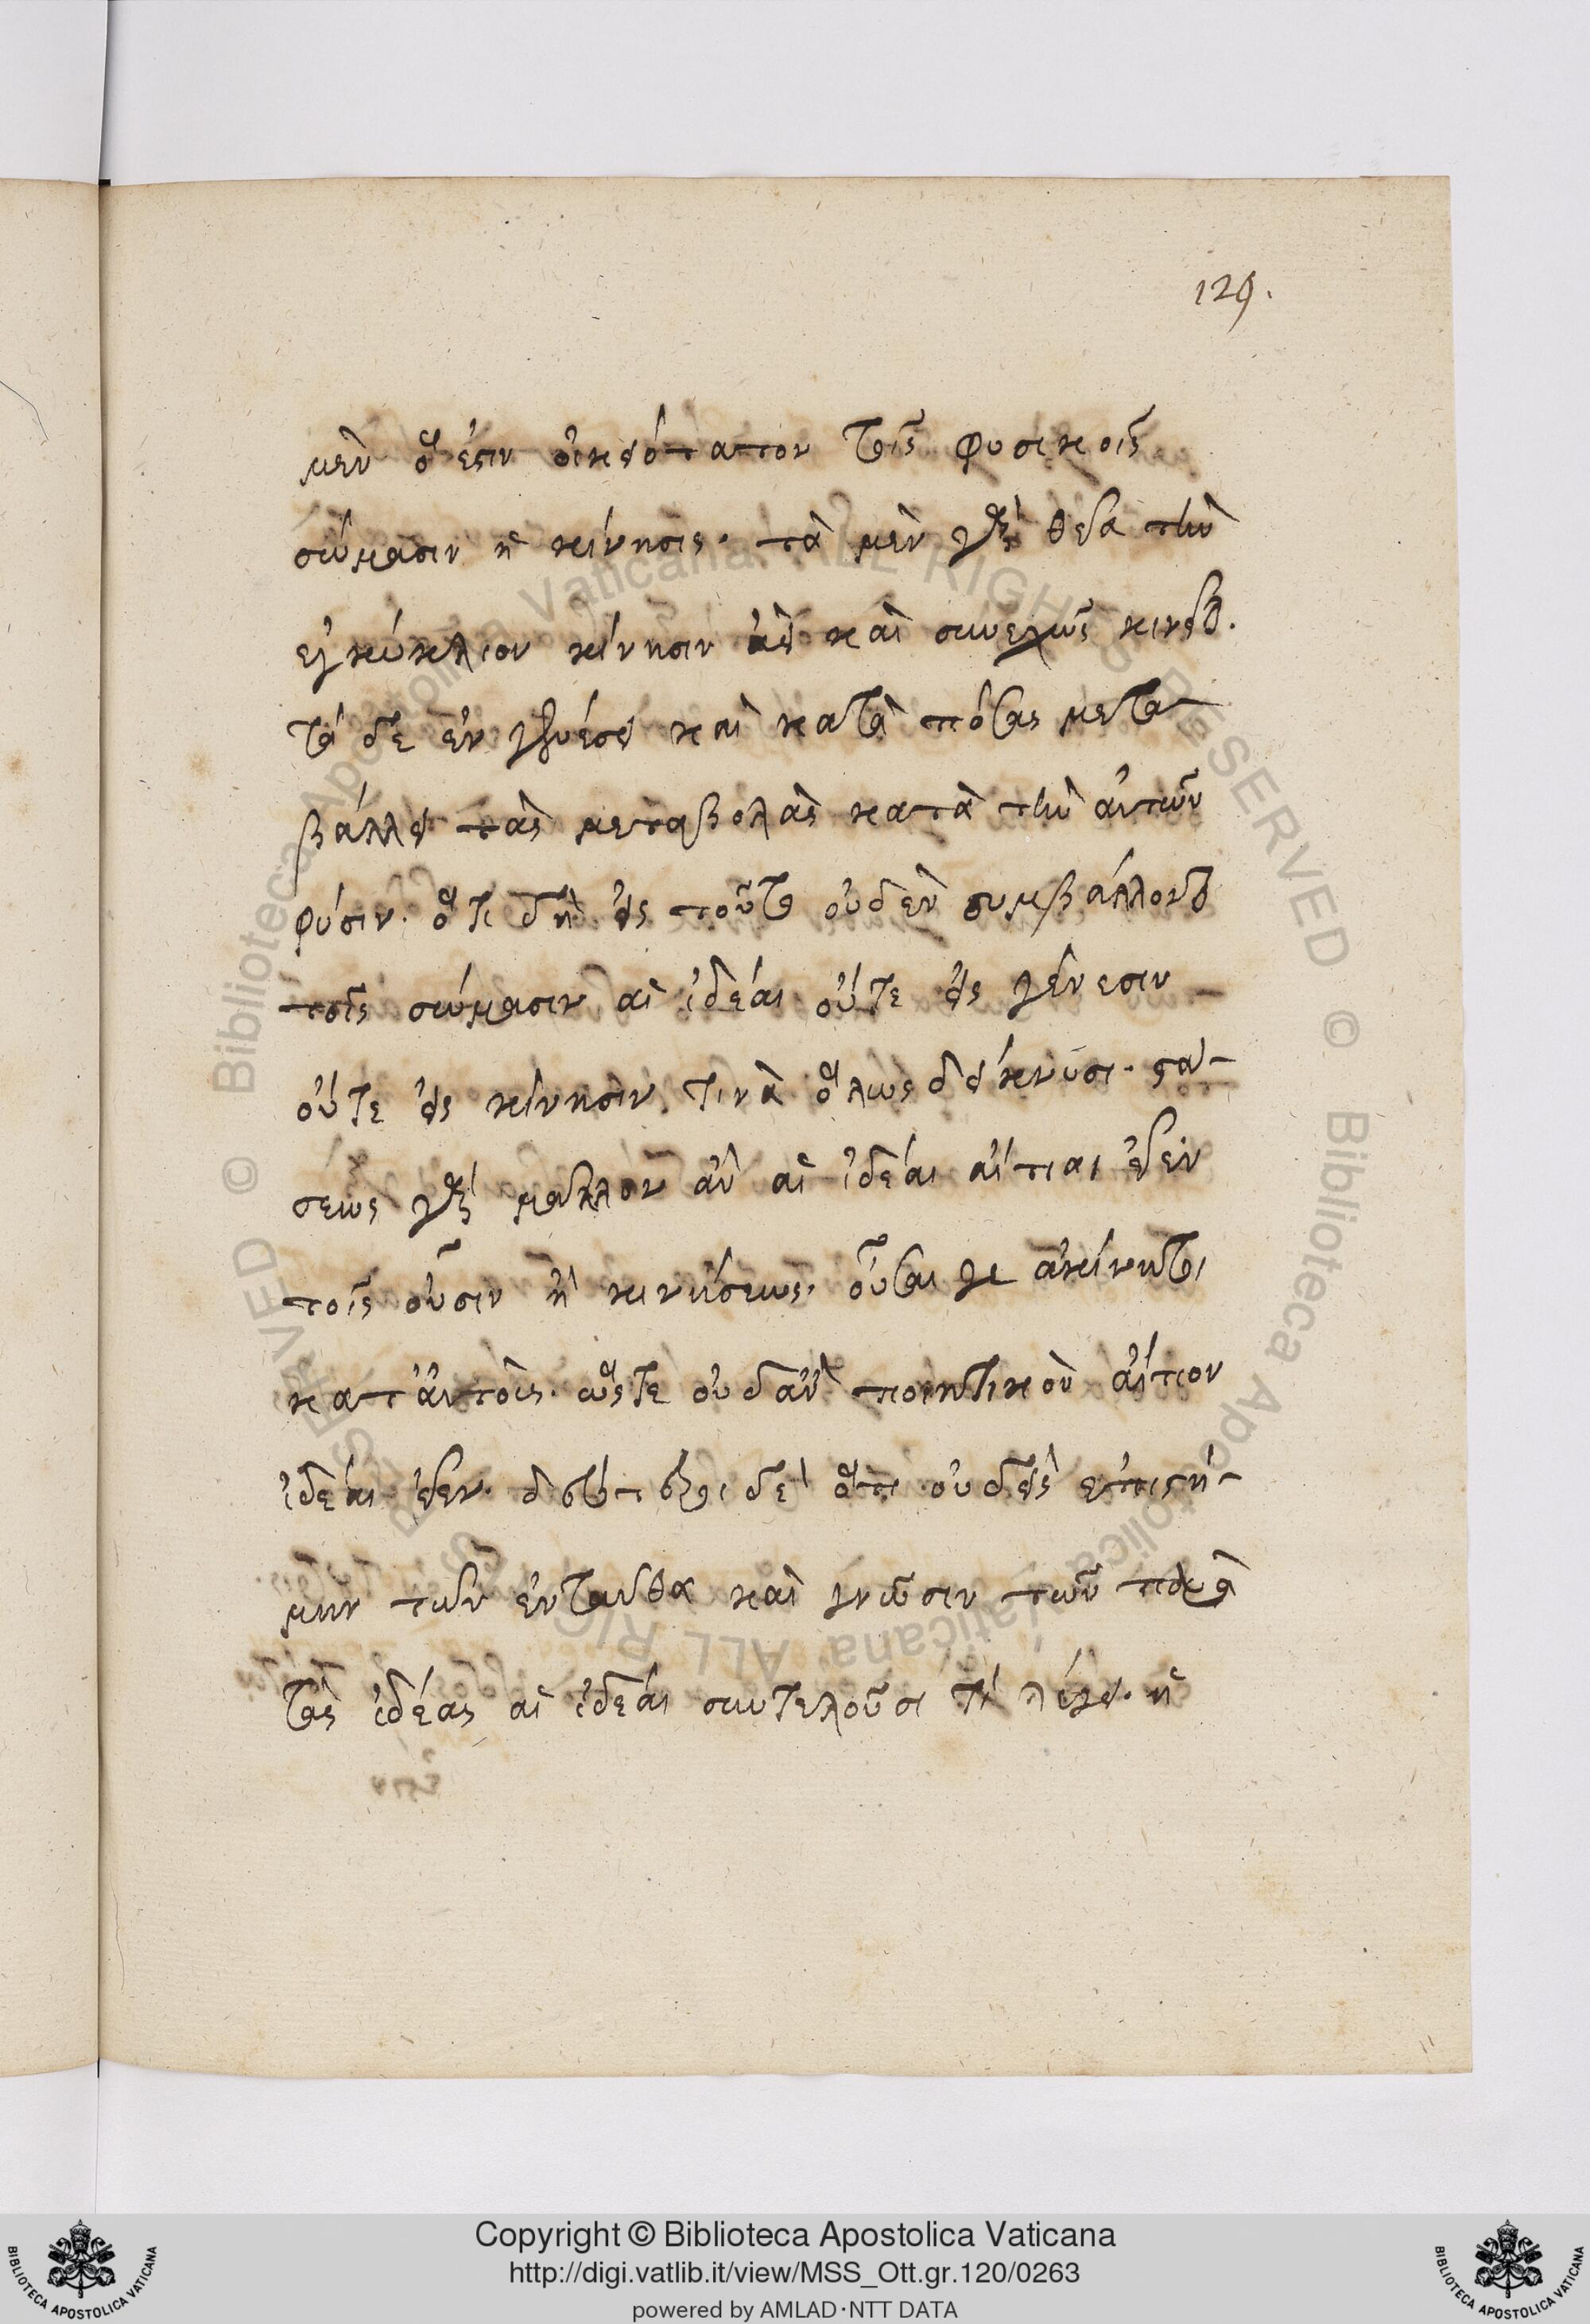 129.
μὲν ὅ ἐστιν οἰκειότατον τοῖς φυσικοῖς
σώμασιν ἡ κίνησις· τὰ μὲν γὰρ θεῖα τὴν
ἐγκύκλιον κίνησιν ἀεὶ καὶ συνεχῶς κινεῖται·
τὰ δὲ ἐν γενέσει καὶ κατὰ πάσας μετα-
βάλλει τὰς μεταβολὰς κατὰ τὴν αὐτῶν
φύσιν· ὅτι δὴ εἰς τοῦτο οὐδὲν συμβάλλονται
τοῖς σώμασιν αἱ ἰδέαι οὔτε εἰς γένεσιν
οὔτε εἰς κίνησιν τινὰ ὅλως δείκνυσι· στά-
σεως γὰρ μᾶλλον ἂν αἱ ἰδέαι αἴτιαι εἶεν
τοῖς οὖσιν ἢ κινήσεως· οὖσαι γε ἀκίνητοι
κατ' αὐτοὺς· ὥστε οὐδ' ἂν ποιητικὸν αἴτιον
ἰδέαι εἶεν· δὲ ὅτι οὐδ' εἰς ἐπιστή-
μην τῶν ἐνταῦθα καὶ γνῶσιν τῶν παρὰ
τὰς ἰδέας αἱ ἰδέαι συντελοῦσι τί λέγει· ἡ
Copyright © Biblioteca Apostolica Vaticana
http://digi.vatlib.it/view/MSS_Ott.gr.120/0263
powered by AMLAD·NTT DATA